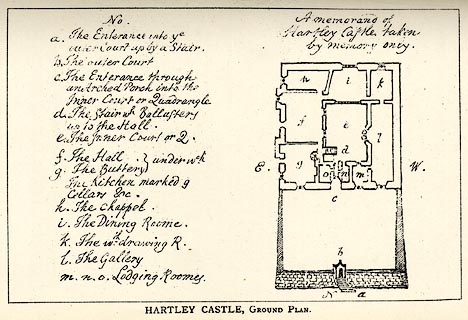 No.
a. The Enterance into yᵉ
outer Court up by a Stair.
b. The outer Court
c. The Enterance through
an arched Porch into the
Inner Court or Quadrangle
d. The Stair wᵗʰ Ballasters
up to the Hall.
e. The Inner Court or Q.
f. The Hall } under wch
g. The Buttery
The Kitchen marked g
Cellars &c.
h. The Chappel.
i. The Dining Roome.
k. The wᵗʰdrawing R.
l. The Gallery
m. n. o. Lodging Roomes.
A memorand of
Hartley Castle taken
by memory only.
h i k
f e l
d
E. g o n m W.
c
b
N a
HARTLEY CASTLE, GROUND PLAN.